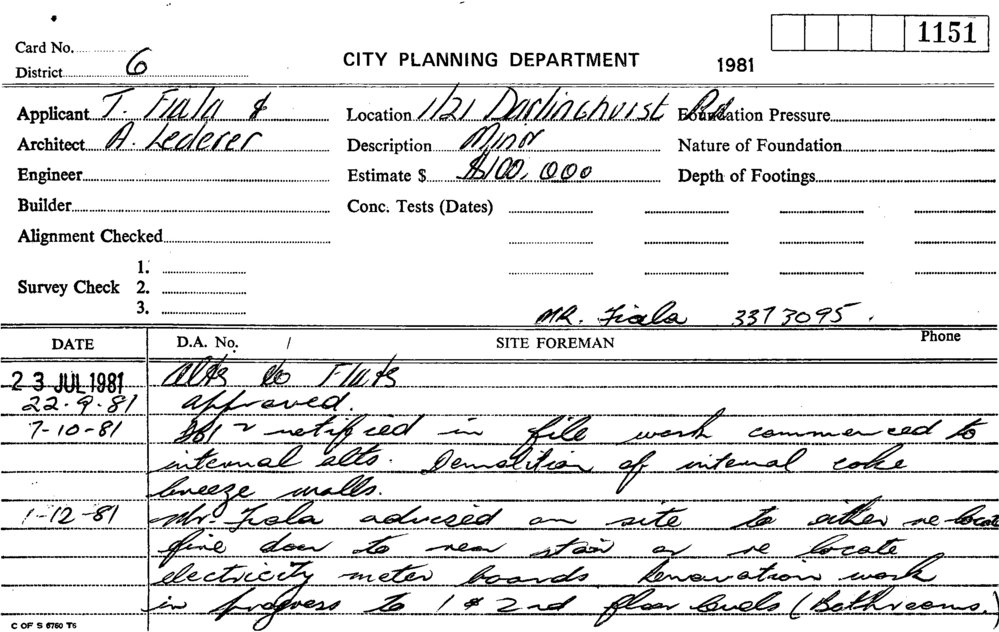 1151
Card No.
District 6
CITY PLANNING DEPARTMENT 1981
Applicant T. Fiala & Location 1/21 Darlinghurst Rd Foundation Pressure
Architect A. Lederer Description Minor Nature of Foundation
Engineer Estimate $ $100,000 Depth of Footings
Builder Conc. Tests (Dates)
Alignment Checked
1.
Survey Check 2.
3.
MR. Fiala 3373095.
DATE D.A. No. / SITE FOREMAN Phone
23 JUL 1981 Alts to Flats
22.9.81 approved.
7-10-81 notified in file work commenced to
internal alts. Demolition of internal coke
breeze walls.
1-12-81 Mr. Fiala advised on site to either re-locate
fire door to near stair or re locate
electricity meter boards Renovation work
in progress to 1 & 2nd floor levels (Bathrooms.)
C OF S 6760 T5